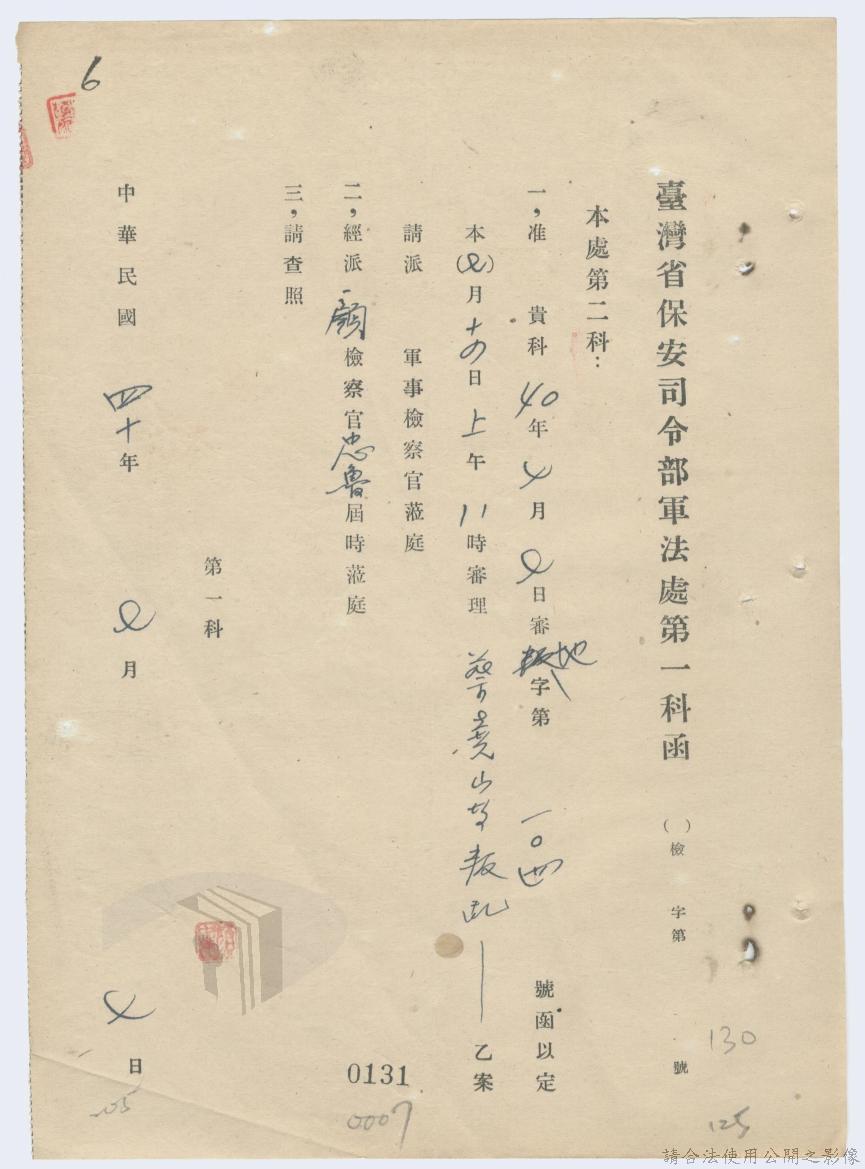 臺灣省保安司令部軍法處第一科函
( )檢 字第 號
130
125
本處第二科：
一，准 貴科40年4月2日審地字第一〇四號函以定
本(2)月十四日上午11時審理蔡堯山等叛亂一乙案
請派 軍事檢察官蒞庭
二，經派顧檢察官忠魯屆時蒞庭
三，請查照
第一科
中華民國四十年 月 日
0131
0007
6
請合法使用公開之影像